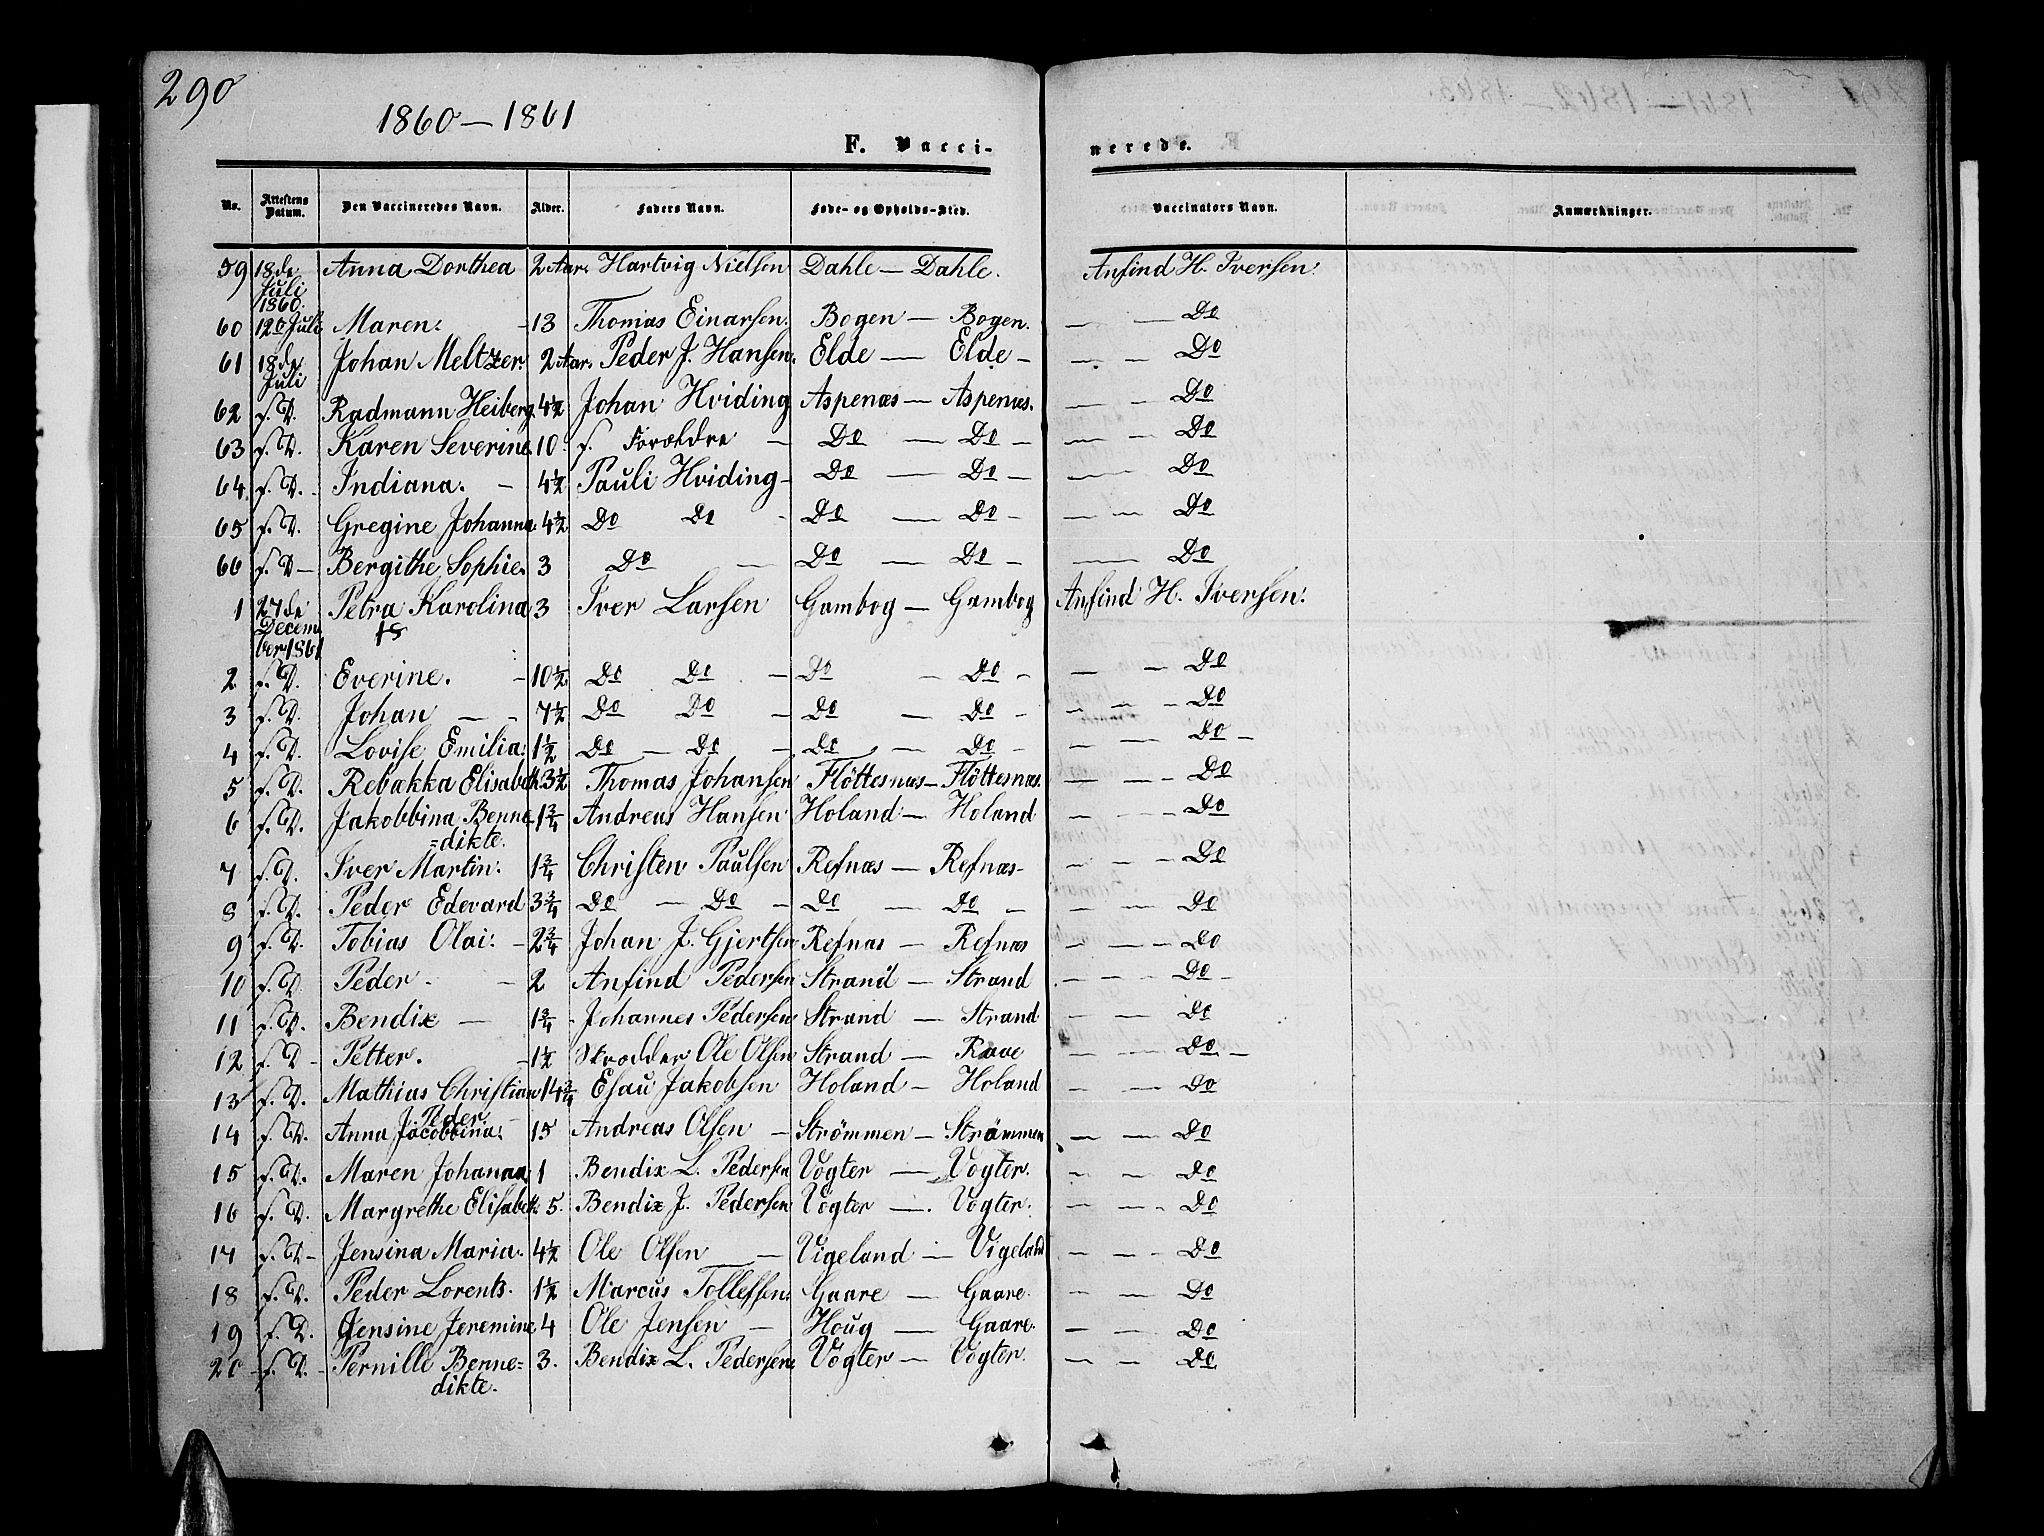 290
1860 — 1861
F. Vacci- nerede.
No. Attestens Datum. Den Vaccineredes Navn. Alder. Faders Navn. Føde- og Opholds-Sted. Vaccinators Navn. Anmærkninger.
59 18de Juli 1860. Anna Dorthea 2 Aar. Hartvig Nielsen Dahle — Dahle. Anfind H. Iversen.
60 Juli Maren. - 13 Thomas Einarsen. Bogen — Bogen. — — Do
61 18de Juli Johan Meltzer. 2 Aar. Peder J. Hansen. Elde — Elde — — — Do
62 f. D. Radmann Heiberg. 4½ Johan Hviding Aspenæs — Aspenæs. — — Do
63 f. D. Karen Severine. 10. f. Forældre — Do — Do — — — Do
64. f. D. - Indiana. - 4½ Pauli Hviding - Do — Do — — — Do
65 f. D. Gregine Johanna. 4½ Do Do - Do — Do - — — Do
66 f. D — Bergithe Sophie. 3 Do — Do — Do - — — Do
1 27de December 1861 Petra Karolina 3 Iver Larsen Gambog — Gambog Anfind H. Iversen.
2 f. D. Everine. - 10½ Do Do - Do - Do - — - Do
3 f. D. Johan — - 7½ Do Do - Do — Do - - - - Do
4 f. D. Lovise Emilia. 1½ Do — Do - Do — Do - — — Do -
5 f. D. Rebækka Elisabeth 3½ Thomas Johansen Flöttesnæs — Flöttesnæs. - — - Do
6 f. D. Jakobbina Benne=dikte. 1¾ Andreas Hansen Holand — Holand - - - Do
7 f. D. Iver Martin. 1¾ Christen Paulsen Refnæs — Refnæs - - - - Do
8 f. D. Peder Edevard 3¾ Do — Do - Do — Do - - - - Do
9 f. D. Tobias Olai. - 2¾ Johan J. Gjertsen Refnæs — Refnæs - - - Do
10 f. D. Peder - - 2 Anfind Pedersen Strand — Strand - - - Do -
11 f. D. Bendix — 1¾ - Johannes Pedersen Strand — Strand - - - Do
12 f. D - Petter. - 1½ Ole Olsen Strand — - - - Do. -
13 f. D. Mathias Christian Peder 14¾ Esau Jakobsen Holand — Holand - - - Do
14 f. D. Anna Jacobbina. 15 Andreas Olsen - Strömmen — Strömmen - — Do
15 f. D. Maren Johanna 1 Bendix L. Pedersen Vogter — Vogter. - - - Do
16 f. D. Margrethe Elisabeth. 5. Bendix J. Pedersen Vogter — . Vogter. - - - Do
17 f. D - Jensina Maria. 4½ Ole Olsen — Vigeland - Vigeland - - - Do
18 f. D. Peder Lorents. 1½ Marcus Tollefsen. Gaare — Gaare. - - Do
19 f. D. Jensine Jeremine. 4 Ole Jensen — Houg — Gaare. - - Do
20 f. D. - Pernille Benne=dikte. 3. Bendix L. Pedersen. Vogter — Vogter. - - Do